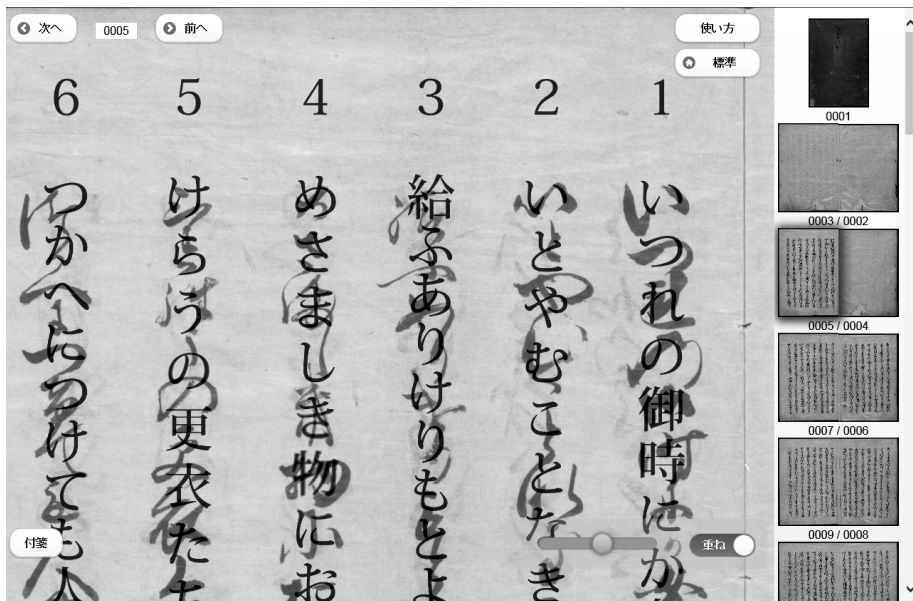 次へ
0005
前へ
使い方
標準
1
いつれの御時にか
2
いとやむことなき
3
給ふありけりもとよ
4
めさましき物にお
5
けらうの更衣たち
6
つかへにつけても人
付箋
重ね
0001
0003 / 0002
0005 / 0004
0007 / 0006
0009 / 0008